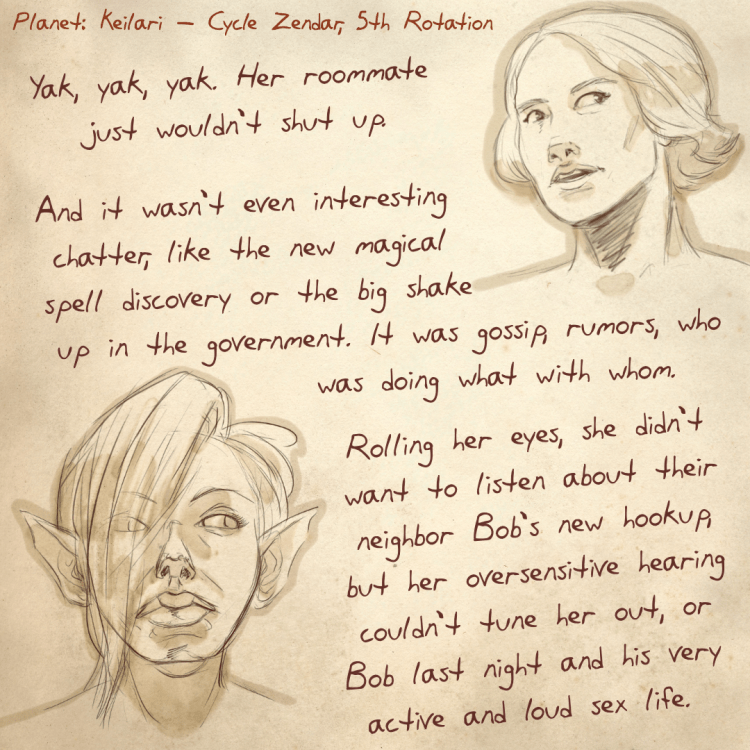 Planet: Keilari – Cycle Zendar, 5th Rotation
Yak, yak, yak. Her roommate
just wouldn't shut up.
And it wasn't even interesting
chatter, like the new magical
spell discovery or the big shake
up in the government. It was gossip, rumors, who
was doing what with whom.
Rolling her eyes, she didn't
want to listen about their
neighbor Bob's new hookup,
but her oversensitive hearing
couldn't tune her out, or
Bob last night and his very
active and loud sex life.